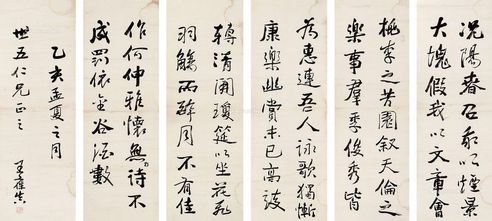 況陽春召我以煙景
大塊假我以文章會
桃李之芳園叙天倫之
樂事羣季俊秀皆
為惠連吾人詠歌獨慚
康樂幽賞未已高談
轉清開瓊筵以坐花飛
羽觴而醉月不有佳
作何伸雅懷無詩不
成罰依金谷酒數
乙亥孟夏之月
世五仁兄正之
王